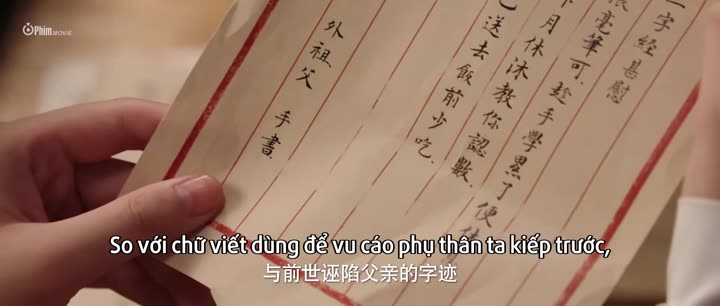 Phim.MOVIE
一字經甚慰
毫筆可趁手學累了便
月休沐教你認數
送去飯前少吃
外祖父 手書
So với chữ viết dùng để vu cáo phụ thân ta kiếp trước,
与前世诬陷父亲的字迹